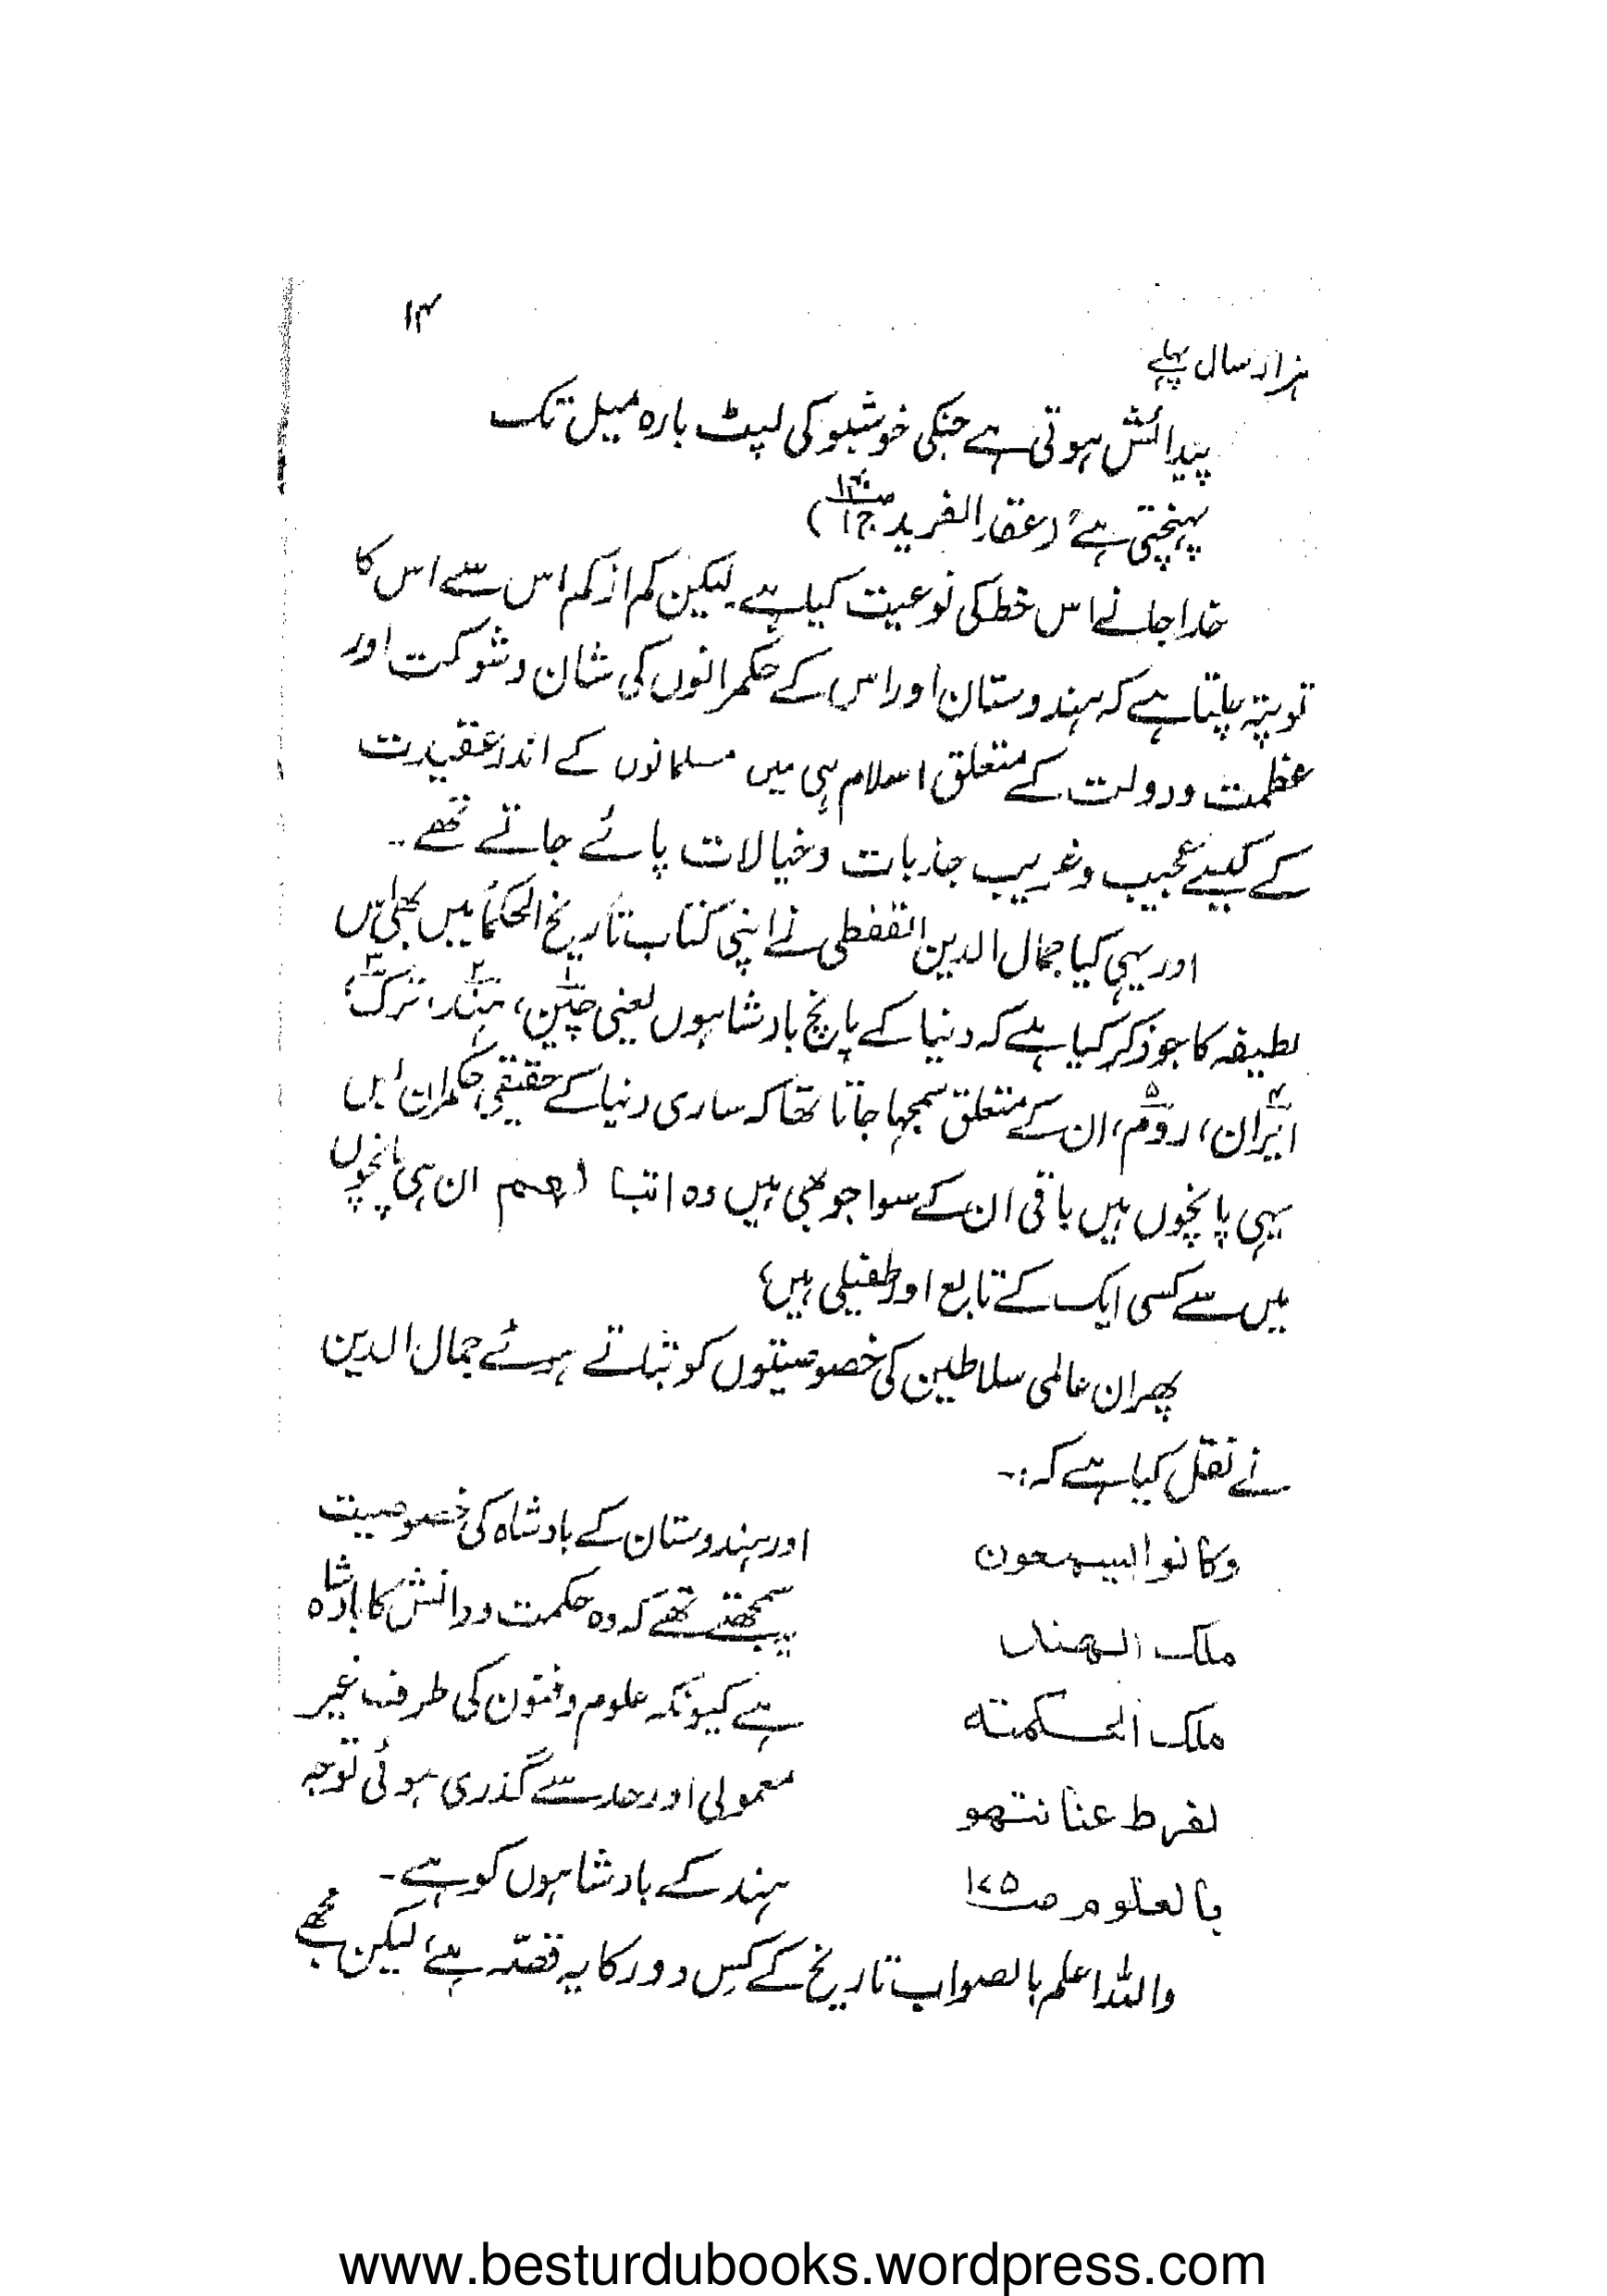 ۱۴
ہزار سال پہلے
پیدائش ہوتی ہے جنکی خوشبو کی لپٹ بارہ میل تک
پہنچتی ہے (عقد الفرید ج۱)
خدا جانے اس خط کی نوعیت کیا ہے۔ لیکن کم از کم اس سے اس کا
تو پتہ چلتا ہے کہ ہندوستان اور اس کے حکمرانوں کی شان و شوکت اور
عظمت و دولت کے متعلق اسلام ہی میں مسلمانوں کے اندر عقیدت
کے کیسے عجیب و غریب جذبات و خیالات پائے جاتے تھے۔
اور یہی کیا جمال الدین القفطی نے اپنی کتاب تاریخ الحکما میں بھی اس
لطیفہ کا جو ذکر کیا ہے کہ دنیا کے پانچ بادشاہوں یعنی چین۱، ہند۲، ترک۳،
ایران۴، روم۵، ان کے متعلق سمجھا جاتا تھا کہ ساری دنیا کے حقیقی حکمران بس
یہی پانچوں ہیں باقی ان کے سوا جو بھی ہیں وہ اتباعھم ان ہی پانچوں
میں سے کسی ایک کے تابع اور طفیلی ہیں؛
پھر ان عالمی سلاطین کی خصوصیتوں کو بتلاتے ہوئے جمال الدین
نے نقل کیا ہے کہ :۔
وکانوا یسمعون
ملک الھند
ملک الحکمتہ
لفرط عنانتھو
بالعلوم ص ۱۷۵
اور ہندوستان کے بادشاہ کی خصوصیت
یہ سمجھتے تھے کہ وہ حکمت و دانش کا بادشاہ
ہے کیونکہ علوم و فنون کی طرف غیر
معمولی اور حد سے گذری ہوئی توجہ
ہند کے بادشاہوں کو ہے۔
واللہ اعلم بالصواب تاریخ کے کس دور کا یہ قصّہ ہے، لیکن مجھے
www.besturdubooks.wordpress.com